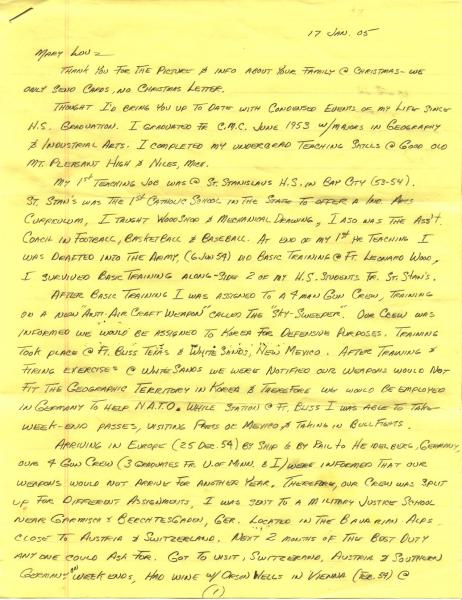 17 JAN. 05
MARY LOU -
THANK YOU FOR THE PICTURE & INFO ABOUT YOUR FAMILY @ CHRISTMAS - WE
ONLY SEND CARDS, NO CHRISTMAS LETTER.
THOUGHT I'D BRING YOU UP TO DATE WITH CONDENSED EVENTS OF MY LIFE SINCE
H.S. GRADUATION. I GRADUATED FR C.M.C. JUNE 1953 W/MAJORS IN GEOGRAPHY
& INDUSTRIAL ARTS. I COMPLETED MY UNDERGRAD TEACHING SKILLS @ GOOD OLD
MT. PLEASANT HIGH & NILES, MICH.
MY 1ST TEACHING JOB WAS @ ST. STANISLAUS H.S. IN BAY CITY (53-54).
ST. STAN'S WAS THE 1ST CATHOLIC SCHOOL IN THE STATE TO OFFER A IND. ARTS
CURRICULUM, I TAUGHT WOODSHOP & MECHANICAL DRAWING, I ALSO WAS THE ASS'T.
COACH IN FOOTBALL, BASKETBALL & BASEBALL. AT END OF MY 1ST YR TEACHING I
WAS DRAFTED INTO THE ARMY, (6 JUN 54) DID BASIC TRAINING @ FT. LEONARD WOOD,
I SURVIVED BASIC TRAINING ALONG-SIDE 2 OF MY H.S. STUDENTS FR. ST. STAN'S.
AFTER BASIC TRAINING I WAS ASSIGNED TO A 4 MAN GUN CREW, TRAINING
ON A NEW ANTI-AIR CRAFT WEAPON CALLED THE "SKY-SWEEPER". OUR CREW WAS
INFORMED WE WOULD BE ASSIGNED TO KOREA FOR DEFENSIVE PURPOSES. TRAINING
TOOK PLACE @ FT. BLISS TEXAS & WHITE SANDS, NEW MEXICO. AFTER TRAINING &
FIRING EXERCISES @ WHITE SANDS WE WERE NOTIFIED OUR WEAPONS WOULD NOT
FIT THE GEOGRAPHIC TERRITORY IN KOREA & THEREFORE WE WOULD BE EMPLOYED
IN GERMANY TO HELP N.A.T.O. WHILE STATION @ FT. BLISS I WAS ABLE TO TAKE
WEEK-END PASSES, VISITING PARTS OF MEXICO & TAKING IN BULLFIGHTS.
ARRIVING IN EUROPE (25 DEC. 54) BY SHIP & BY RAIL TO HEIDELBURG, GERMANY,
OUR 4 GUN CREW (3 GRADUATES FR U. OF MINN. & I) WERE INFORMED THAT OUR
WEAPONS WOULD NOT ARRIVE FOR ANOTHER YEAR. THEREFORE, OUR CREW WAS SPLIT
UP FOR DIFFERENT ASSIGNMENTS, I WAS SENT TO A MILITARY JUSTICE SCHOOL
NEAR GARMISH & BERCHTESGADEN, GER. LOCATED IN THE BAVARIAN ALPS
CLOSE TO AUSTRIA & SWITZERLAND. NEXT 2 MONTHS OF THE BEST DUTY
ANY ONE COULD ASK FOR. GOT TO VISIT, SWITZERLAND, AUSTRIA & SOUTHERN
GERMANY ON WEEK ENDS, HAD WINE W/ ORSON WELLS IN VIENNA (FEB. 54) @
(1)